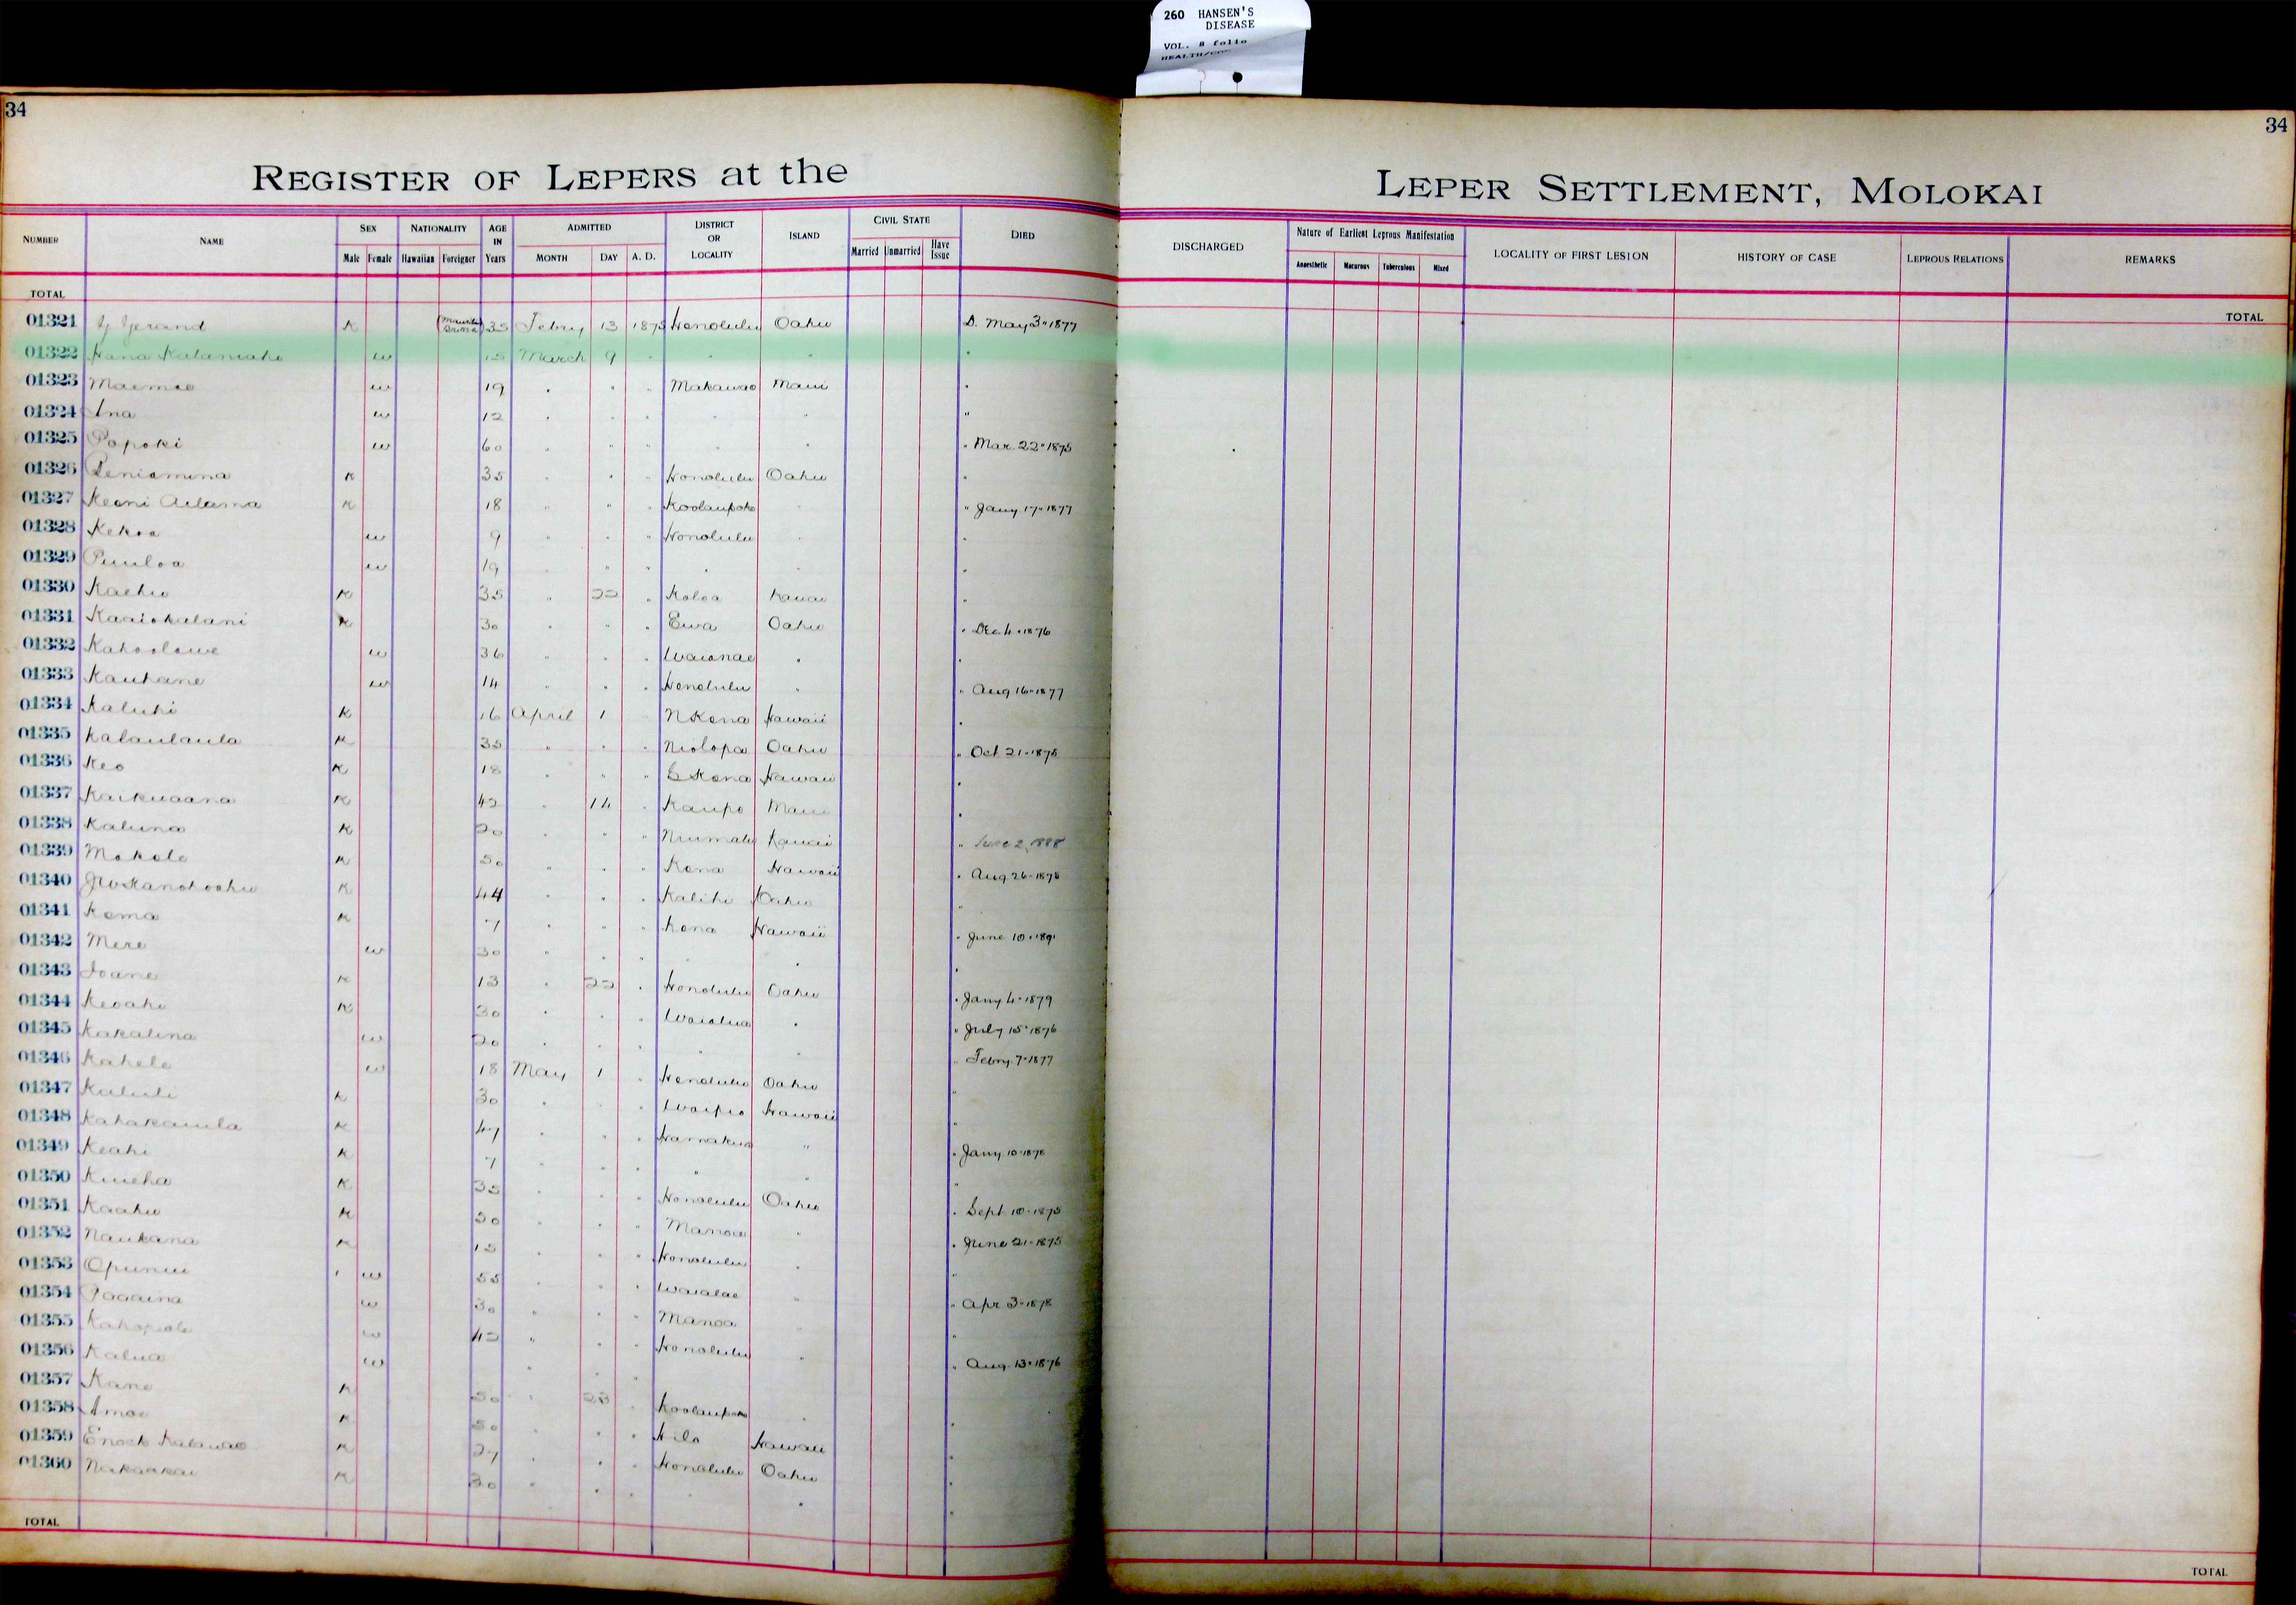 260 HANSEN'S
DISEASE
VOL. 8 folio
34
34
REGISTER OF LEPERS at the
LEPER SETTLEMENT, MOLOKAI
NUMBER NAME SEX Male Female NATIONALITY Hawaiian Foreigner AGE IN Years ADMITTED MONTH DAY A. D. DISTRICT OR LOCALITY ISLAND CIVIL STATE Married Unmarried Have Issue DIED
DISCHARGED Nature of Earliest Leprous Manifestation Anaesthetic Macurous Tuberculous Mixed LOCALITY OF FIRST LESION HISTORY OF CASE LEPROUS RELATIONS REMARKS
TOTAL
TOTAL
01321 K 35 Febry 13 1875 Honolulu Oahu D. May 3" 1877
01322 w 15 March 9 " " " "
01323 Maemae w 19 " " " Makawao Maui "
01324 Ana w 12 " " " " " "
01325 Popoki w 60 " " " " " " Mar. 22" 1875
01326 Peniamina K 35 " " " Honolulu Oahu "
01327 Keoni Adama K 18 " " " Koolaupoko " " Jany 17" 1877
01328 Kekoa w 9 " " " Honolulu " "
01329 Puuloa w 19 " " " " " "
01330 Kaehu K 35 " 22 " Koloa Kauai "
01331 Kaaiokalani K 30 " " " Ewa Oahu " Dec 4" 1876
01332 Kahoolawe w 36 " " " Waianae " "
01333 Kauhane w 14 " " " Honolulu " " Aug 16" 1877
01334 Kaluhi K 16 April 1 " N Kona Hawaii "
01335 Kalaulaula K 35 " " " Niolopa Oahu " Oct 21" 1875
01336 Keo K 18 " " " Kona Hawaii "
01337 Kaikuaana K 42 " 14 " Kaupo Maui "
01338 Kaluna K 20 " " " Niumalu Kauai " June 2, 1888
01339 Makole K 50 " " " Kona Hawaii " Aug 26" 1878
01340 K 44 " " " Kalihi Oahu "
01341 Kama K 7 " " " Kona Hawaii " June 10"
01342 Mere w 30 " " " " " "
01343 Ioane K 13 " 22 " Honolulu Oahu " Jany 4" 1879
01344 Keoahi K 30 " " " Waialua " " July 15" 1876
01345 Kakalina w 20 " " " " " " Febry. 7" 1877
01346 Kahele w 18 May 1 " Honolulu Oahu "
01347 Kaluli K 30 " " " Waipio Hawaii "
01348 Kahakauila K 47 " " " Hamakua " " Jany 10" 1878
01349 Keahi K 7 " " " " " "
01350 Kuheha K 35 " " " Honolulu Oahu " Sept 10" 1875
01351 Kaahu K 50 " " " Manoa " " June 21" 1875
01352 Naukana K 15 " " " Honolulu " "
01353 Opunui w 55 " " " Waialae " " Apr. 3" 1878
01354 w 30 " " " Manoa " "
01355 w 42 " " " Honolulu " " Aug. 13" 1876
01356 Kalua w " " "
01357 Kane K 50 " 23 " Koolaupoko " "
01358 Amoe K 50 " " " Hilo Hawaii "
01359 Enoch K 27 " " " Honolulu Oahu "
01360 Nakaakai K 30 " " " " " "
TOTAL
TOTAL